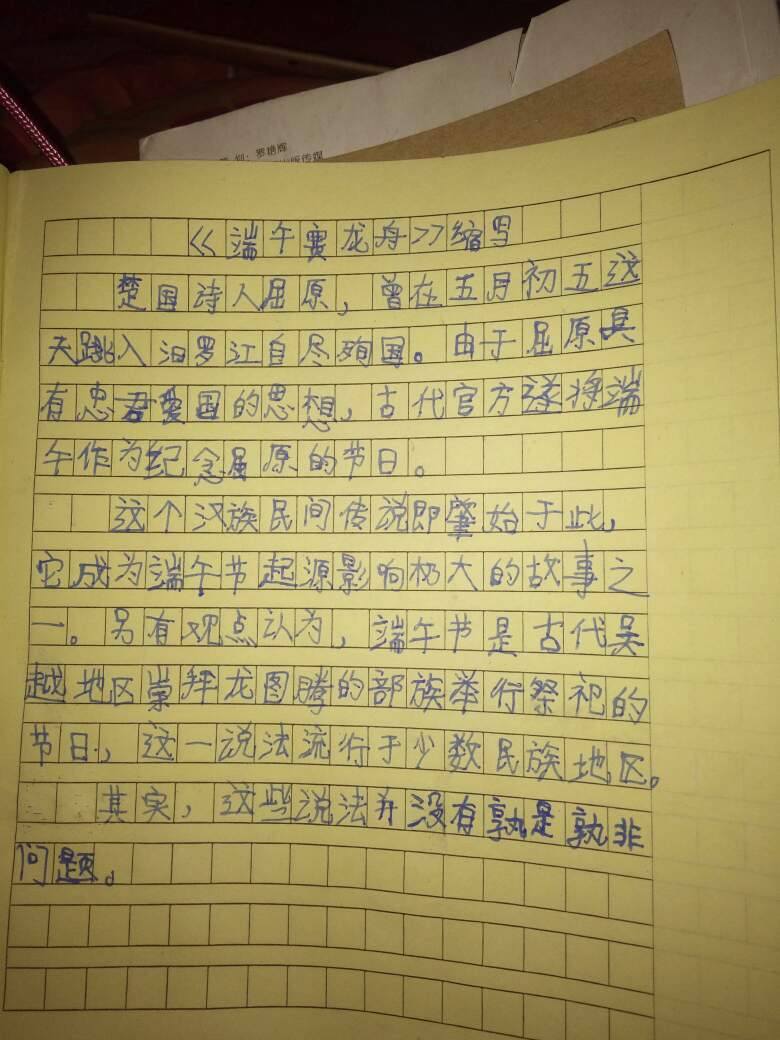 划：罗艳辉
版传媒
《端午赛龙舟》缩写
楚国诗人屈原，曾在五月初五这
天跳入汨罗江自尽殉国。由于屈原具
有忠君爱国的思想，古代官方遂将端
午作为纪念屈原的节日。
这个汉族民间传说即肇始于此，
它成为端午节起源影响极大的故事之
一。另有观点认为，端午节是古代吴
越地区崇拜龙图腾的部族举行祭祀的
节日，这一说法流行于少数民族地区。
其实，这些说法并没有孰是孰非
问题。